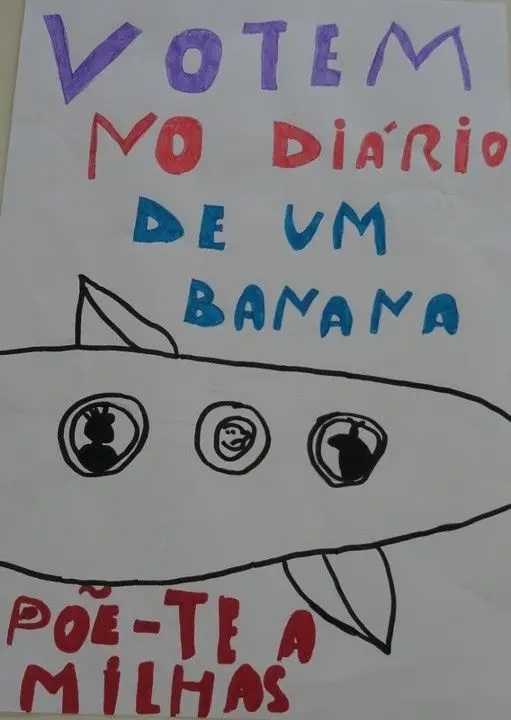 VOTEM
NO DIÁRIO
DE UM
BANANA
PÕE-TE A
MILHAS